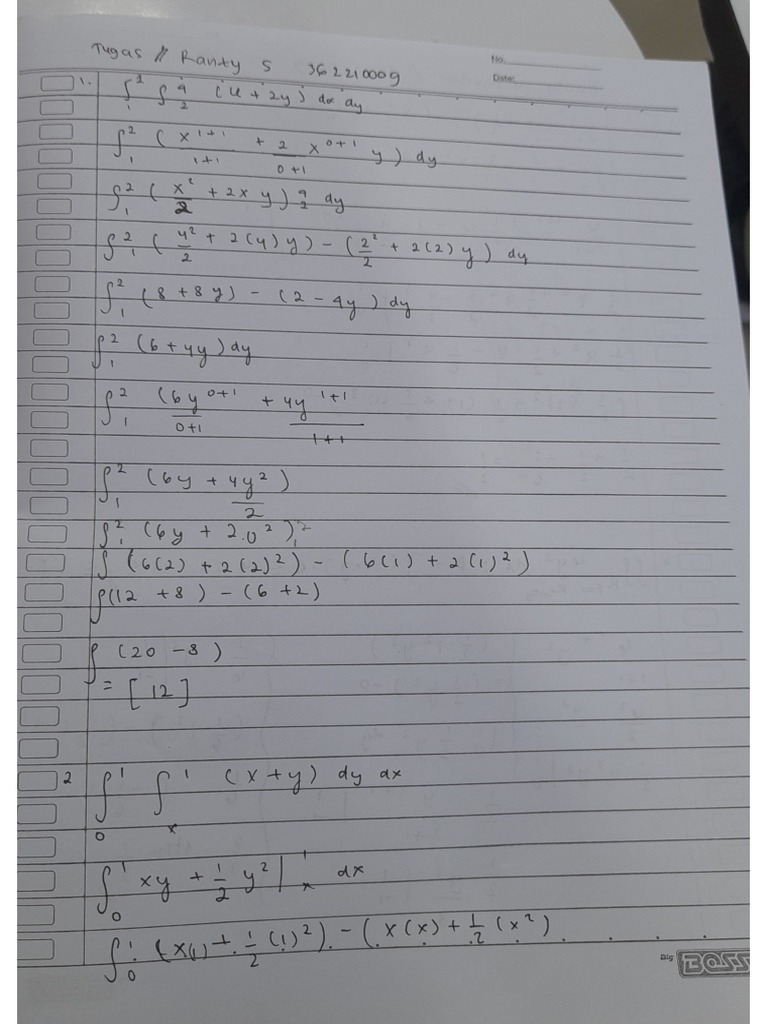 Tugas // Ranty S 362210009
No.
Date:
1. ∫₁² ∫₂⁴ (x + 2y) dx dy
∫₁² (x¹⁺¹/1+1 + 2/0+1 x⁰⁺¹ y) dy
∫₁² (x²/2 + 2xy)₂⁴ dy
∫₁² (4²/2 + 2(4)y) - (2²/2 + 2(2)y) dy
∫₁² (8 + 8y) - (2 - 4y) dy
∫₁² (6 + 4y) dy
∫₁² (6y⁰⁺¹/0+1 + 4y¹⁺¹/1+1
∫₁² (6y + 4y²/2)
∫₁² (6y + 2.0²)₁²
∫ (6(2) + 2(2)²) - (6(1) + 2(1)²)
∫(12 + 8) - (6 + 2)
∫ (20 - 8)
= [12]
2 ∫₀¹ ∫ₓ¹ (x + y) dy dx
∫₀¹ xy + 1/2 y² |ₓ¹ dx
∫₀¹ (x(1) + 1/2 (1)²) - (x(x) + 1/2 (x²)
Big BOSS